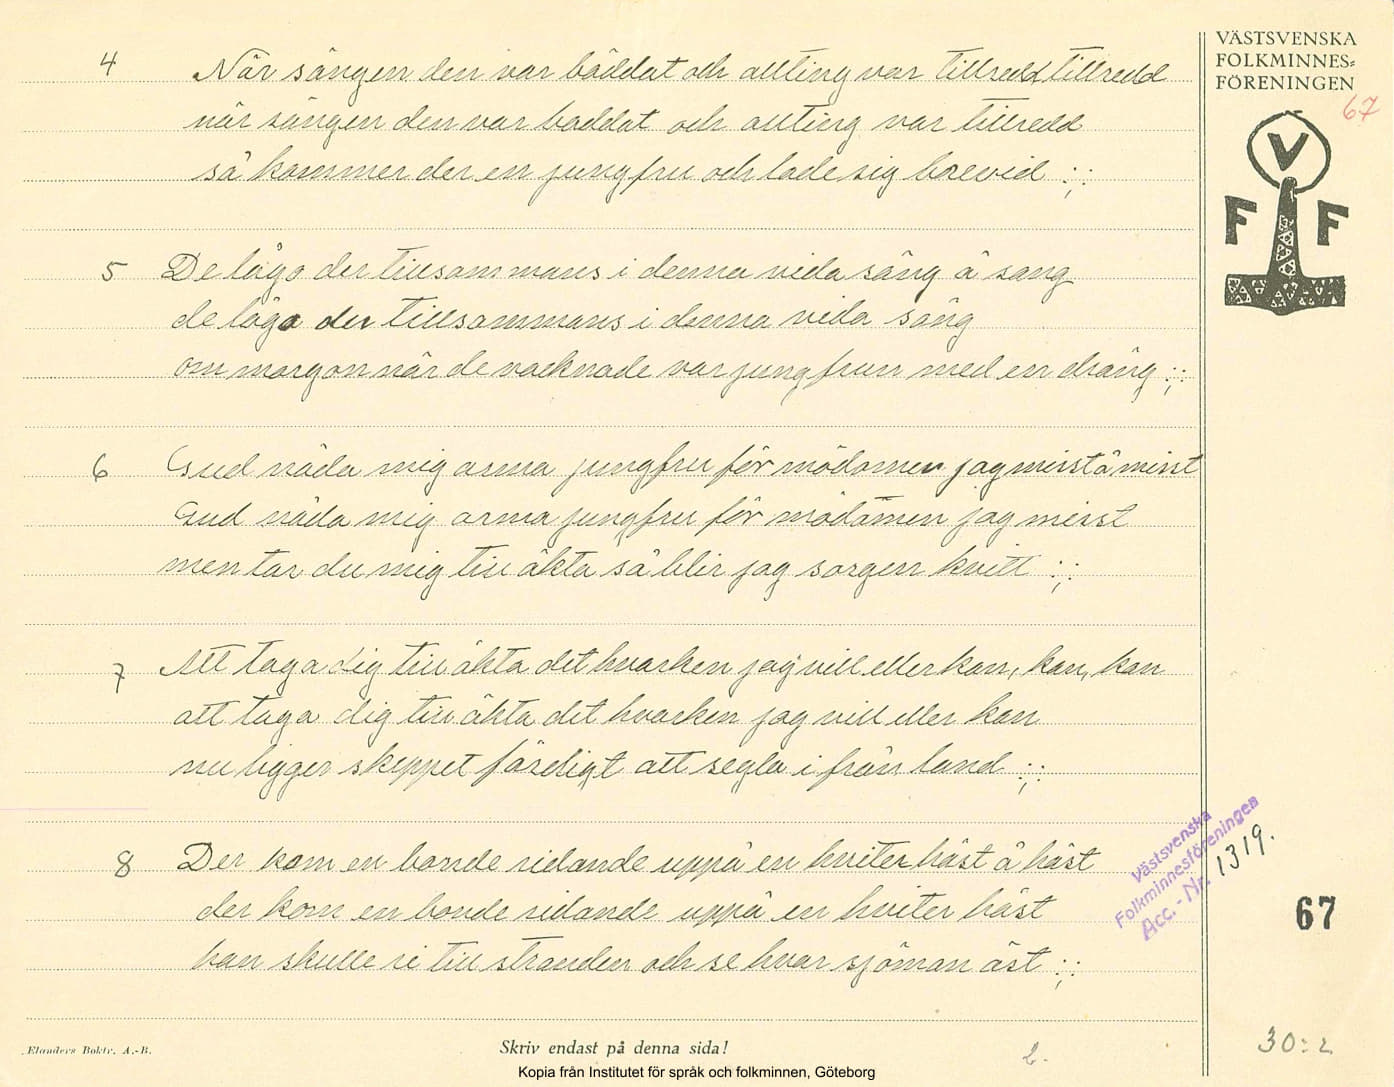 VÄSTSVENSKA
FOLKMINNES=
FÖRENINGEN
67
V
F F
4 När sängen den var bäddat och allting var tillredd, tillredd
när sängen den var baddat och allting var tillredd
så kommer der en jungfru och lade sig brevid :,:
5 De lågo der tillsammans i denna vida säng å säng
de lågo der tillsammans i denna vida säng
om morgon när de vacknade var jungfrun med en dräng :,:
6 Gud nåda mig arma jungfru för mödomen jag mist å mist
Gud nåda mig arma jungfru för mödomen jag mist
men tar du mig till äkta så blir jag sorgen kvitt :,:
7 Att taga dig till äkta det hvarken jag vill eller kan, kan, kan
att taga dig till äkta det hvarken jag vill eller kan
nu ligger skeppet färdigt att segla i från land :,:
8 Der kom en bonde ridande uppå en hviter häst å häst
der kom en bonde ridande uppå en hviter häst
han skulle ri till stranden och se hvar sjöman äst :,:
Västsvenska
Folkminnesföreningen
Acc. - Nr. 1319.
67
Elanders Boktr. A.-B.
Skriv endast på denna sida!
2.
30:2
Kopia från Institutet för språk och folkminnen, Göteborg